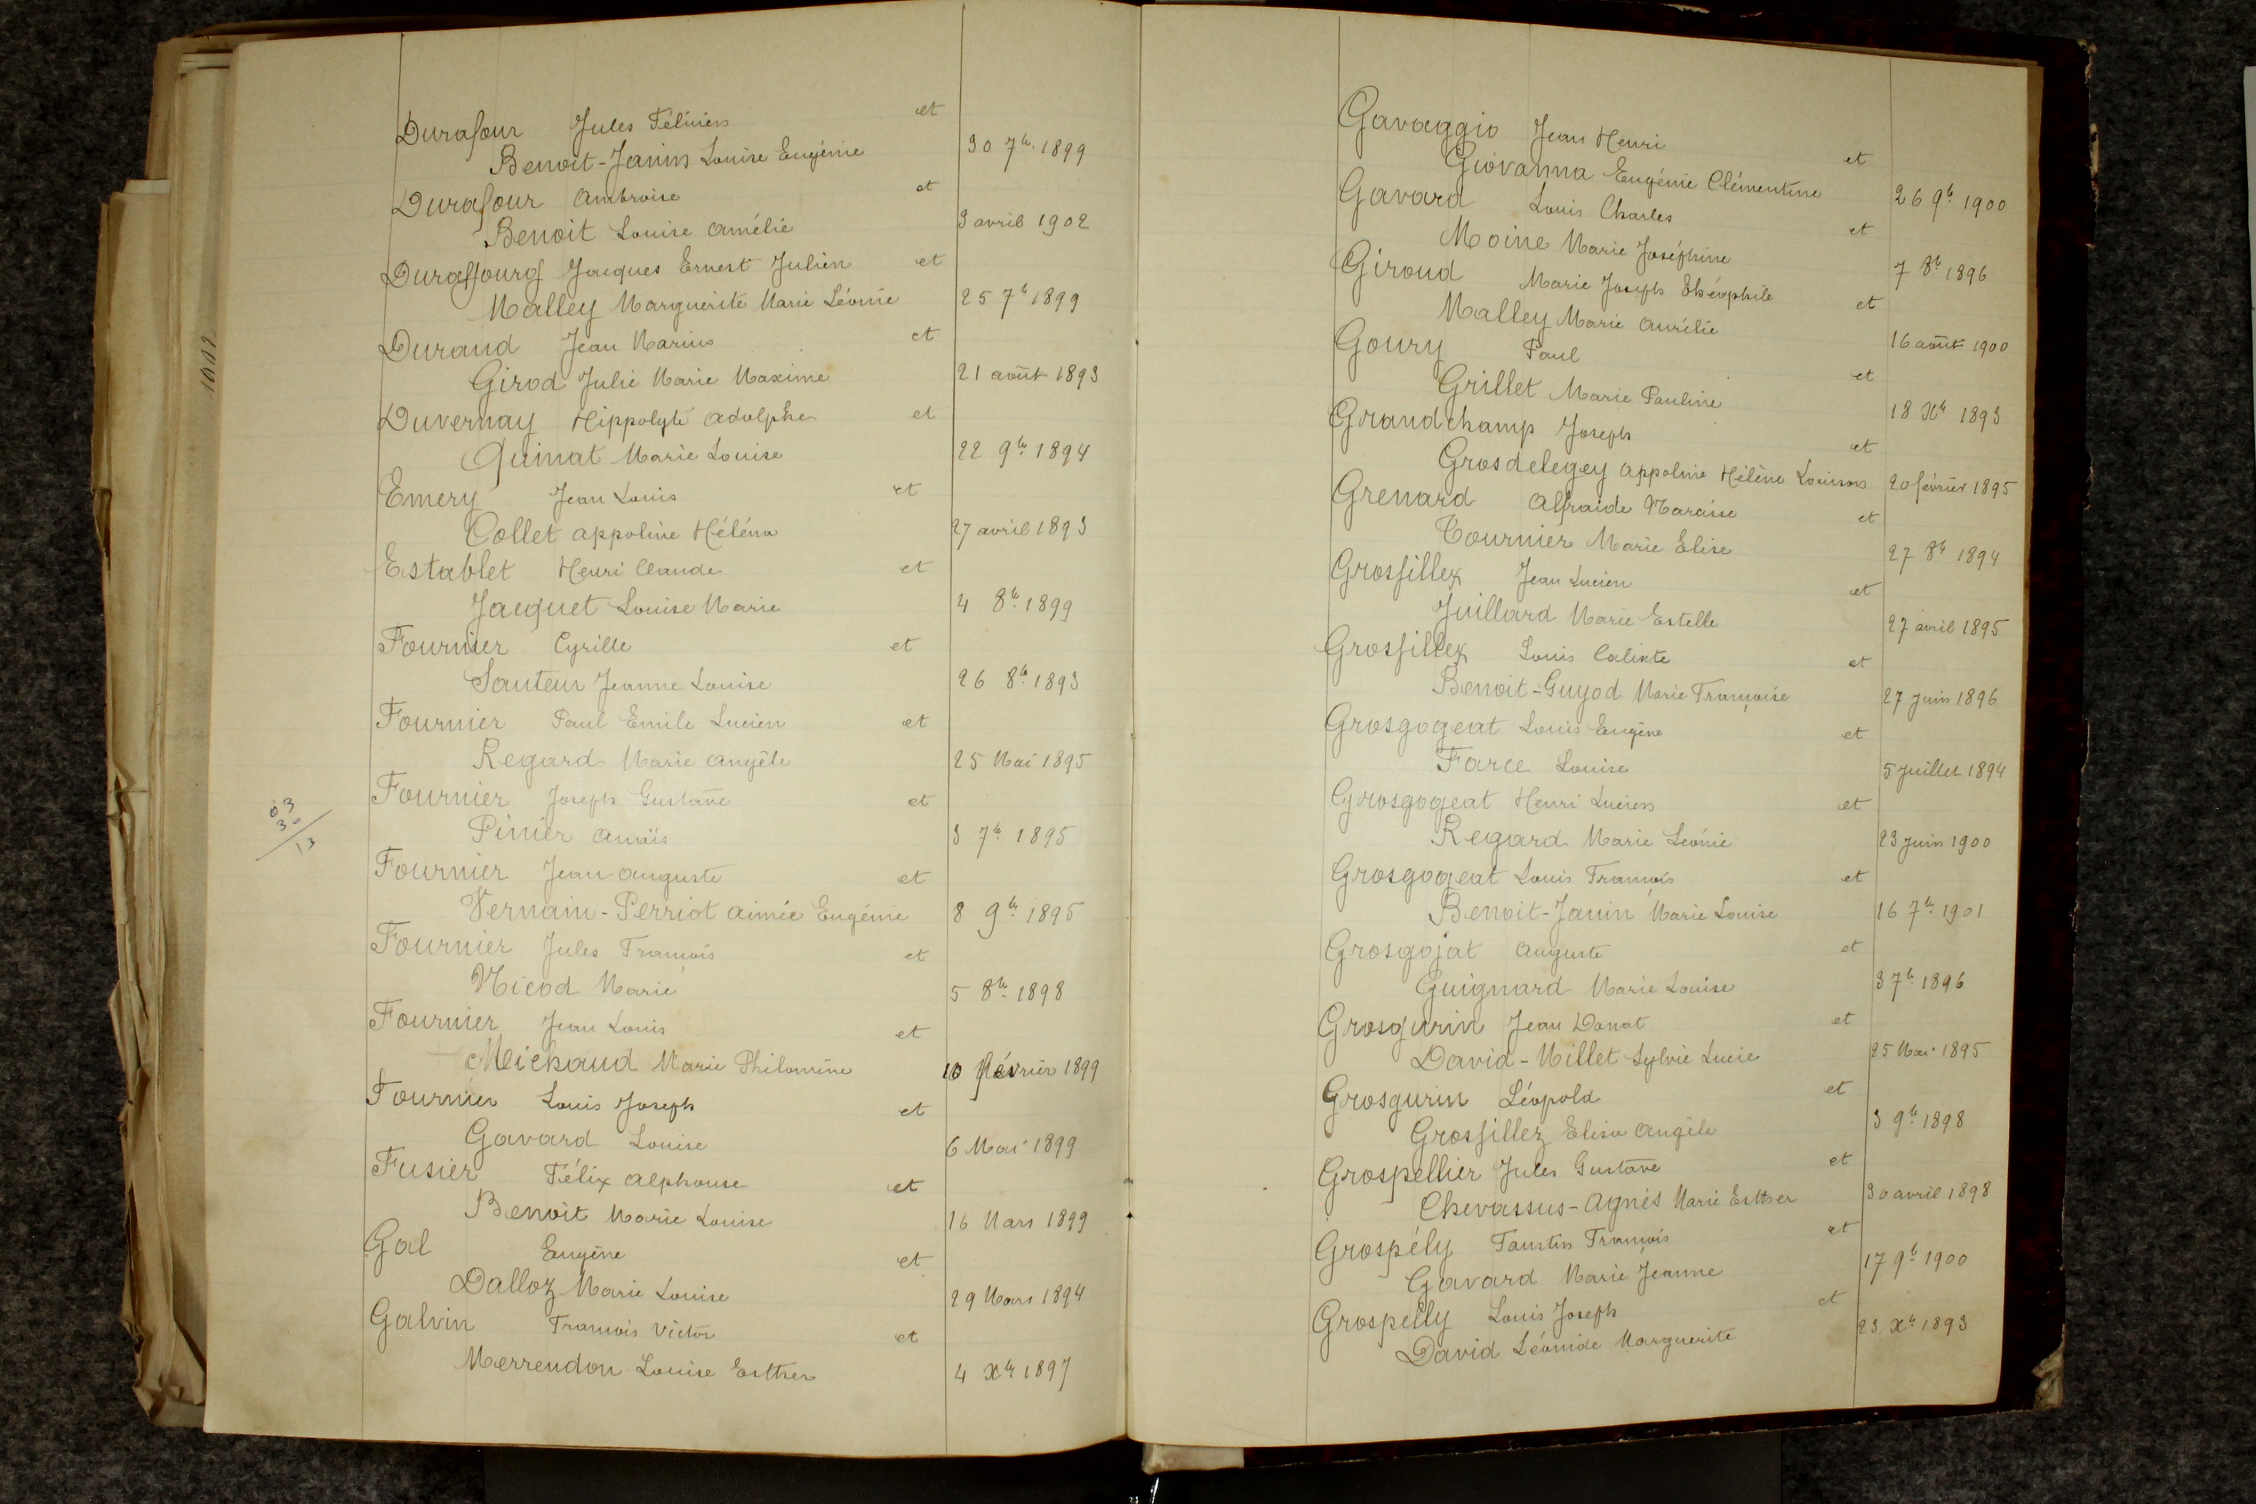 Durafour Jules Félicien et
Benoit-Janin Louise Eugénie 30 7bre 1899
Durafour Ambroise et
Benoit Louise Amélie 3 avril 1902
Duraffourg Jacques Ernest Julien et
Malley Marguerite Marie Léonie 25 7bre 1899
Durand Jean Marius et
Girod Julie Marie Maxime 21 août 1893
Duvernay Hippolyte Adolphe et
Quinat Marie Louise 22 9bre 1894
Emery Jean Louis et
Collet Appoline Héléna 27 avril 1893
Establet Henri Claude et
Jacquet Louise Marie 4 8bre 1899
Fournier Cyrille et
Sauteur Jeanne Louise 26 8bre 1893
Fournier Paul Emile Lucien et
Regard Marie Angèle 25 Mai 1895
Fournier Joseph Gustave et
Pinier Anaïs 3 7bre 1895
Fournier Jean Auguste et
Vernain-Perriot Aimée Eugénie 8 9bre 1895
Fournier Jules François et
Nicod Marie 5 8bre 1898
Fournier Jean Louis et
Michaud Marie Philomène 10 février 1899
Fournier Louis Joseph et
Gavard Louise 6 Mai 1899
Fusier Félix Alphonse et
Benoit Marie Louise 16 Mars 1899
Gal Eugène et
Dalloz Marie Louise 29 Mars 1894
Galvin François Victor et
Merrendon Louise Esther 4 Xbre 1897
Gavaggio Jean Henri et
Giovanna Eugénie Clémentine 26 9bre 1900
Gavard Louis Charles et
Moine Marie Joséphine 7 8bre 1896
Giroud Marie Joseph Théophile et
Malley Marie Aurélie 16 août 1900
Goury Paul et
Grillet Marie Pauline 18 Xbre 1893
Grandchamp Joseph et
Grosdelegey Appoline Hélène Louison 20 février 1895
Grenard Alfraide Narcisse et
Tournier Marie Elise 27 8bre 1894
Grosfillex Jean Lucien et
Juillard Marie Estelle 27 avril 1895
Grosfillex Louis Calixte et
Benoit-Guyod Marie Françoise 27 juin 1896
Grosgogeat Louis Eugène et
Farce Louise 5 juillet 1894
Grosgogeat Henri Lucien et
Regard Marie Léonie 23 juin 1900
Grosgogeat Louis François et
Benoit-Janin Marie Louise 16 7bre 1901
Grosgojat Auguste et
Guignard Marie Louise 3 7bre 1896
Grosgurin Jean Donat et
David-Millet Sylvie Lucie 25 Mai 1895
Grosgurin Léopold et
Grosfillez Elisa Angèle 3 9bre 1898
Grospellier Jules Gustave et
Chevassus-Agnés Marie Esther 30 avril 1898
Grospély Faustin François et
Gavard Marie Jeanne 17 9bre 1900
Grospelly Louis Joseph et
David Léonide Marguerite 23 Xbre 1893